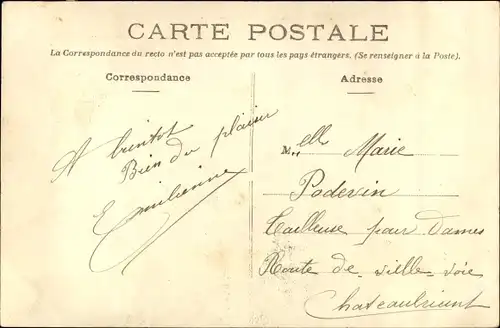 CARTE POSTALE
La Correspondance du recto n'est pas acceptée par tous les pays étrangers. (Se renseigner à la Poste).
Correspondance
Adresse
A bientot
Bien du plaisir
Emilienne
M.elle Marie
Podevin
Tailleuse pour Dames
Route de ville-voie
Chateaubriant